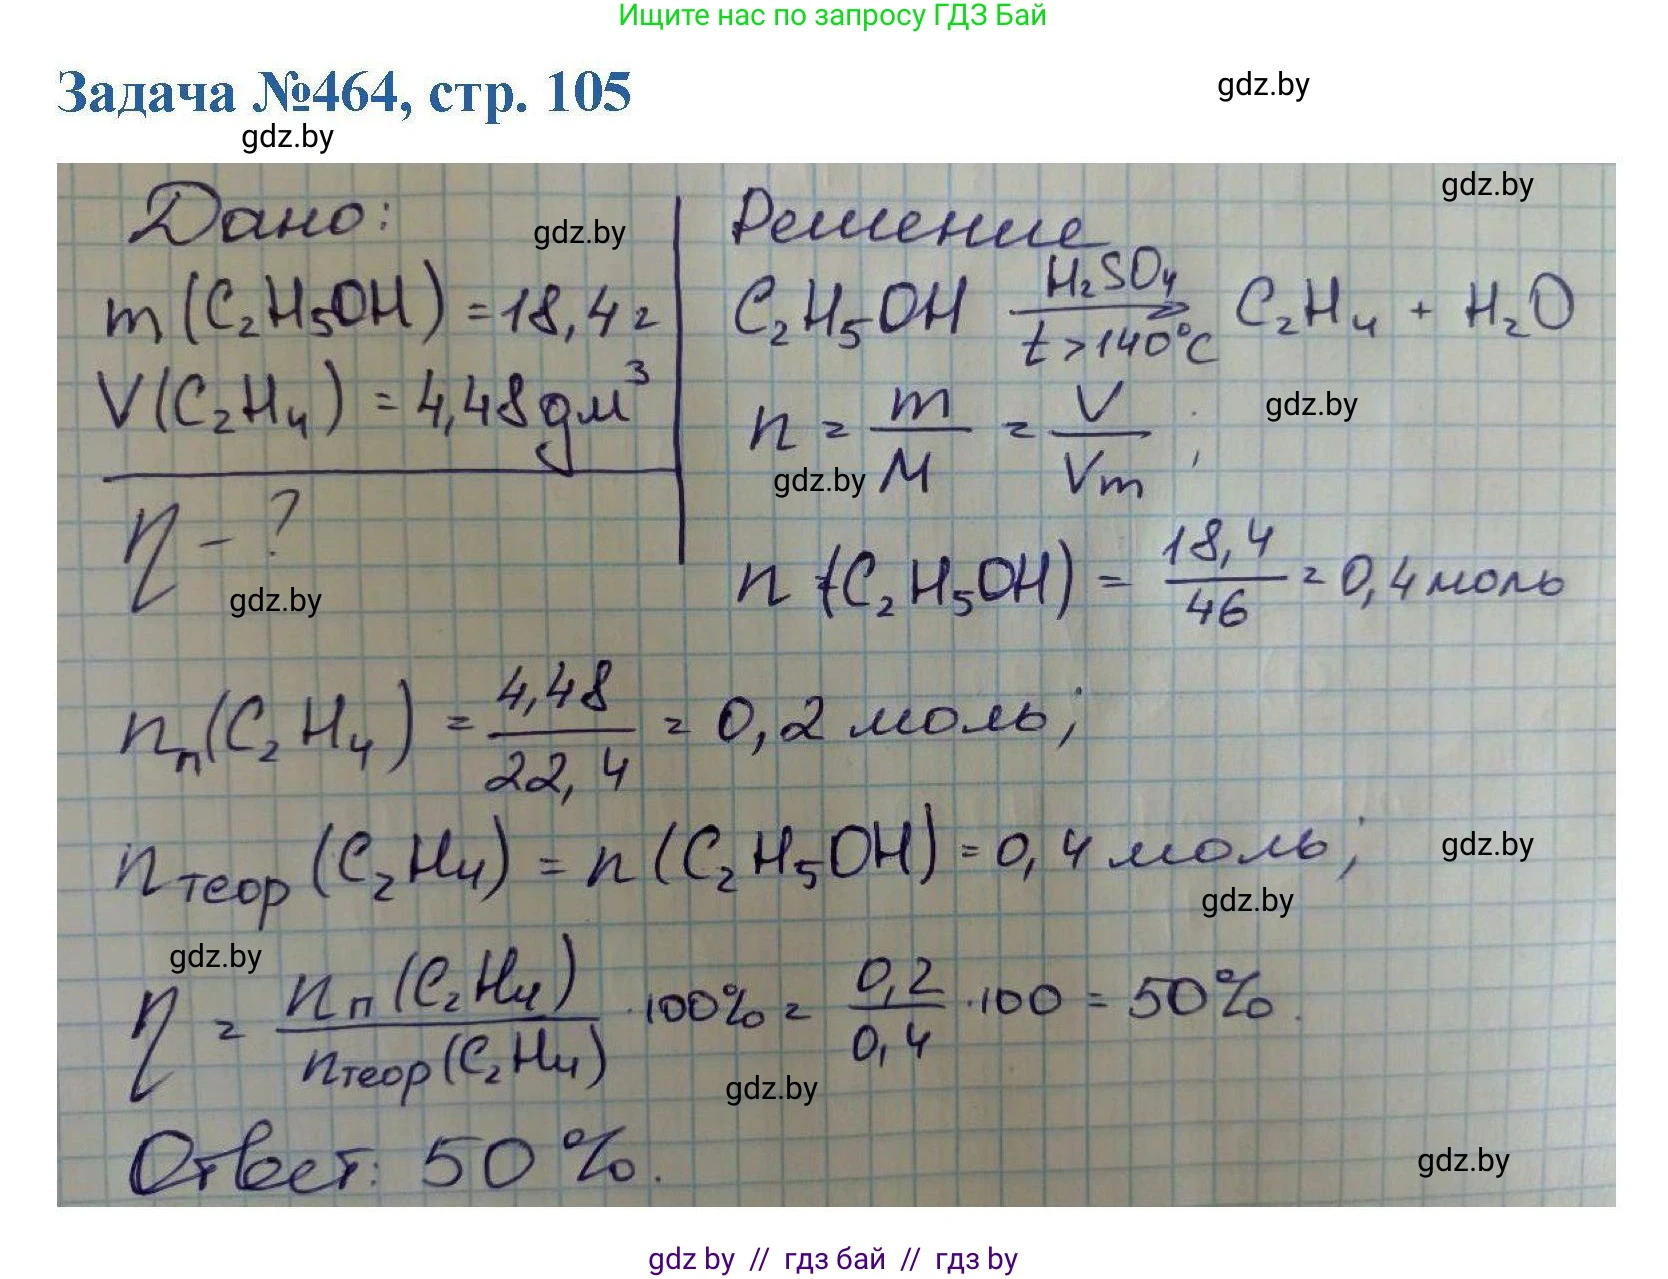 Ищите нас по запросу ГДЗ Бай
Задача №464, стр. 105
gdz.by
gdz.by
Дано:
gdz.by
Решение
gdz.by
m(C₂H₅OH) = 18,4 г
C₂H₅OH H₂SO₄ → t > 140°C C₂H₄ + H₂O
V(C₂H₄) = 4,48 дм³
n = m/M = V/Vm;
gdz.by
gdz.by
η - ?
gdz.by
n (C₂H₅OH) = 18,4/46 = 0,4 моль
nп(C₂H₄) = 4,48/22,4 = 0,2 моль;
nтеор(C₂H₄) = n(C₂H₅OH) = 0,4 моль;
gdz.by
gdz.by
gdz.by
η = nп(C₂H₄)/nтеор(C₂H₄) · 100% = 0,2/0,4 · 100 = 50%.
gdz.by
Ответ: 50%.
gdz.by
gdz by // гдз бай // гдз by